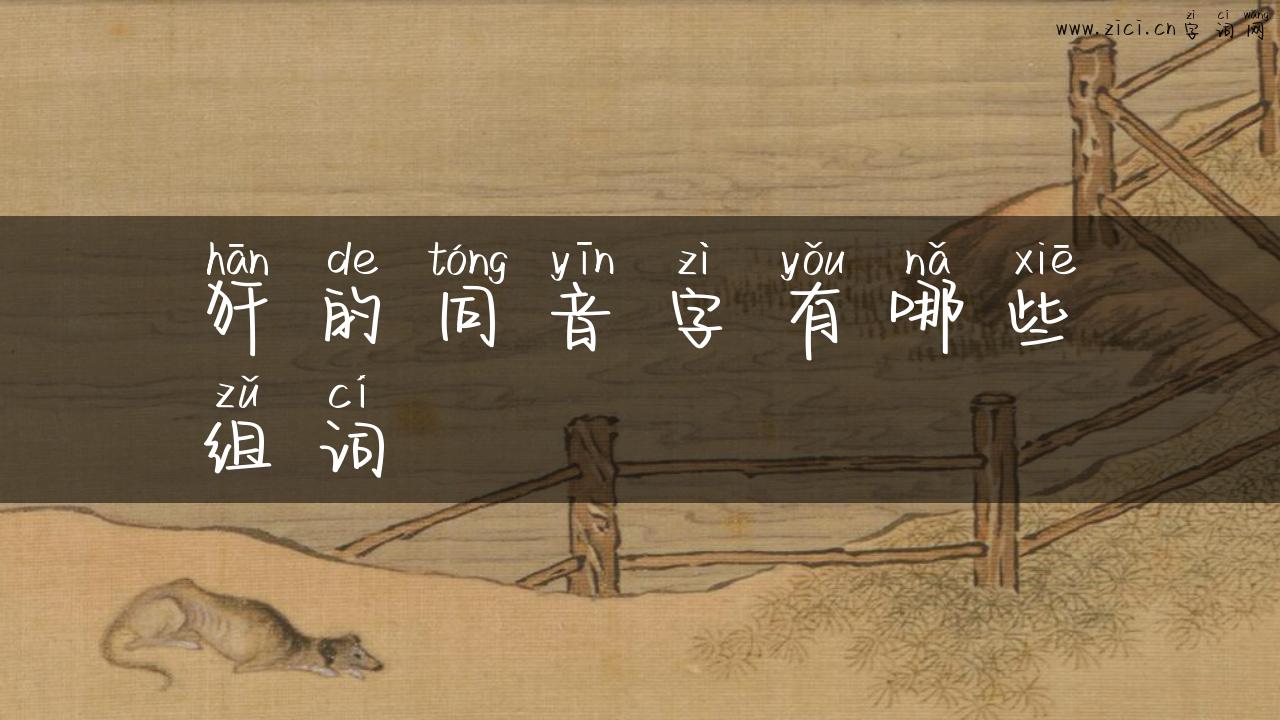 zì cí wǎng
www.zici.cn 字词网
hān de tóng yīn zì yǒu nǎ xiē
犴的同音字有哪些
zǔ cí
组词